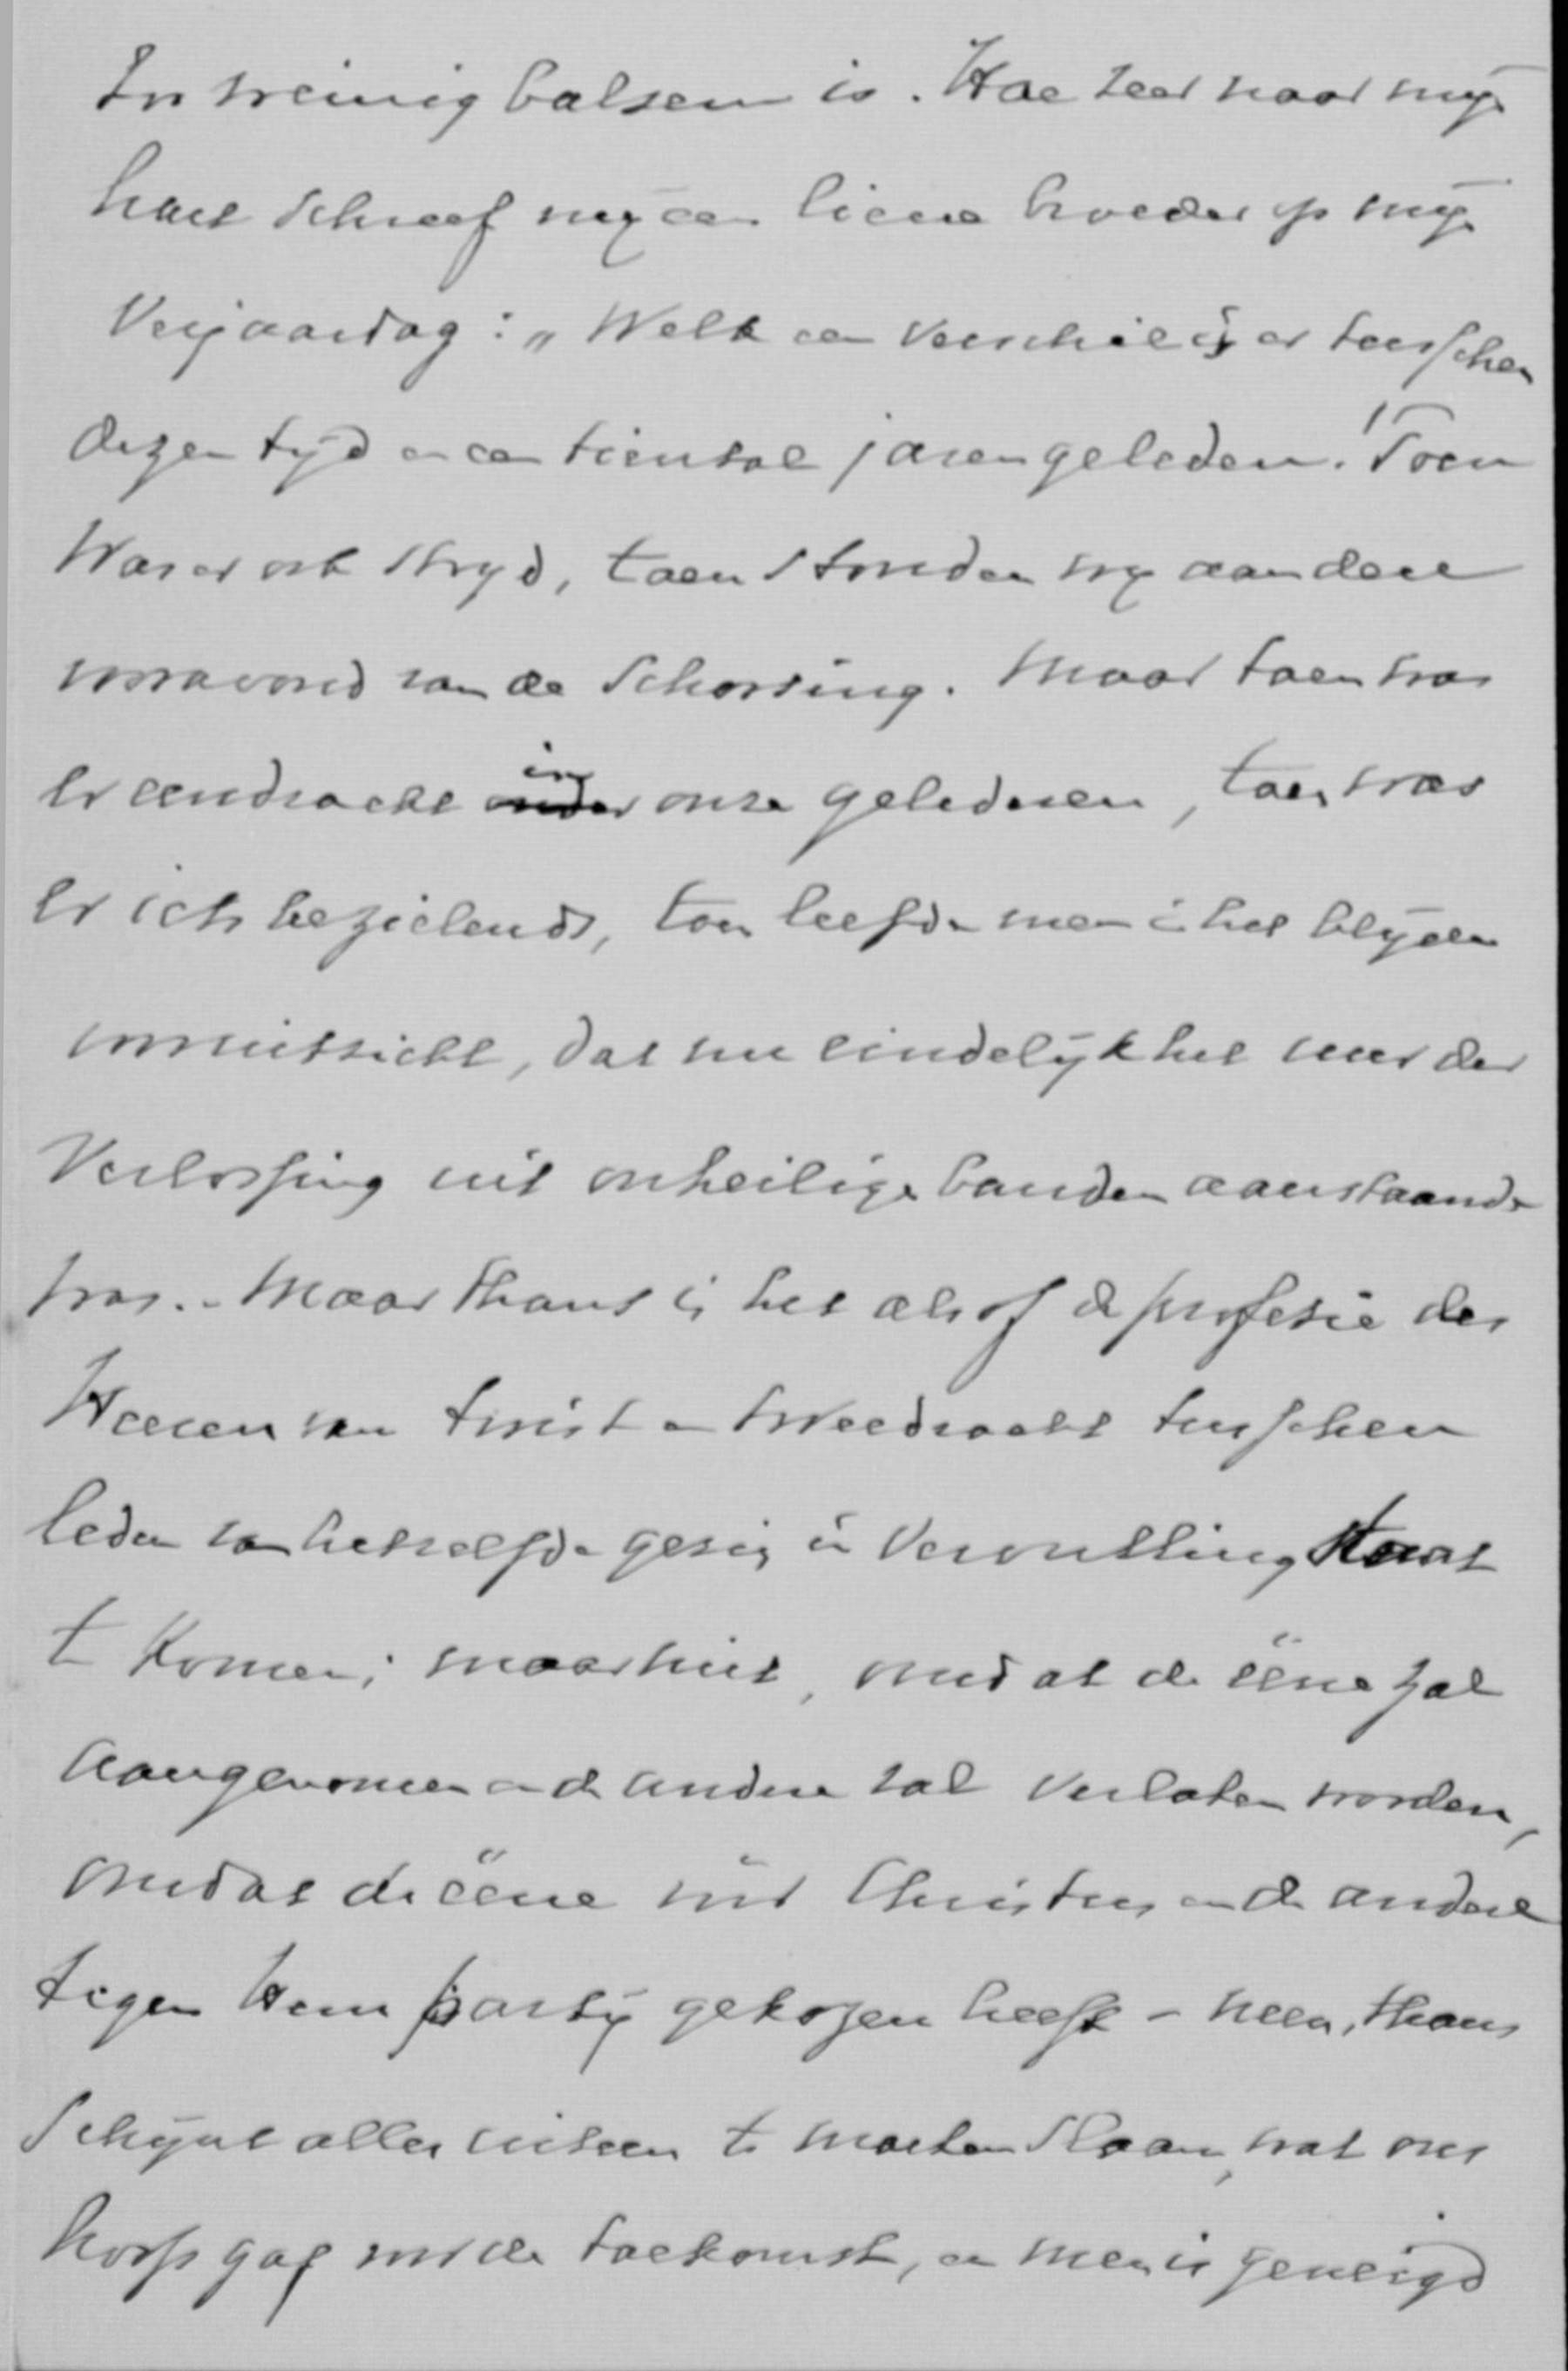 Er weinig balsem is. Hoe zeer naar mijn
hart schreef mij een lieve broeder op mijn
Verjaardag: „Welk een verschil is er tusschen
dezen tijd en een tiental jaren geleden! Toen
was er ook strijd, toen stonden wij aan den
vooravond van de Schorsing. Maar toen was
er eendracht in onze gelederen, toen was
er iets bezielends, toen leefde men in het blijde
vooruitzicht, dat nu eindelijk het uur der
Verlossing uit onheilige banden aanstaande
was. - Maar thans is het alsof de profetie des
Heeren van twist en tweedracht tusschen
leden van hetzelfde gezin in Vervulling staat
te komen; maar niet, omdat de ééne zal
aangenomen en de andere zal verlaten worden,
omdat de ééne vóór Christus en de andere
tegen Hem partij gekozen heeft - neen, thans
Schijnt alles uiteen te moeten slaan, wat ons
hoop gaf voor de toekomst, en men is geneigd